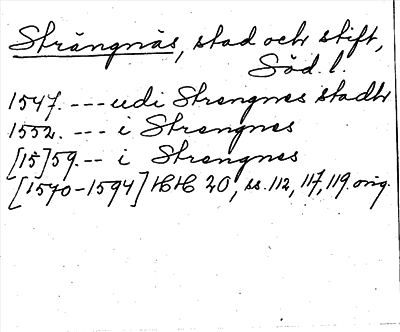 Strängnäs, stad och stift,
Söd. l.
1547. --- udi Strengnes stadh
1552. --- i Strengnes
[15]59. -- i Strengnes
[1570-1594] HH 20, ss. 112, 117, 119. orig.